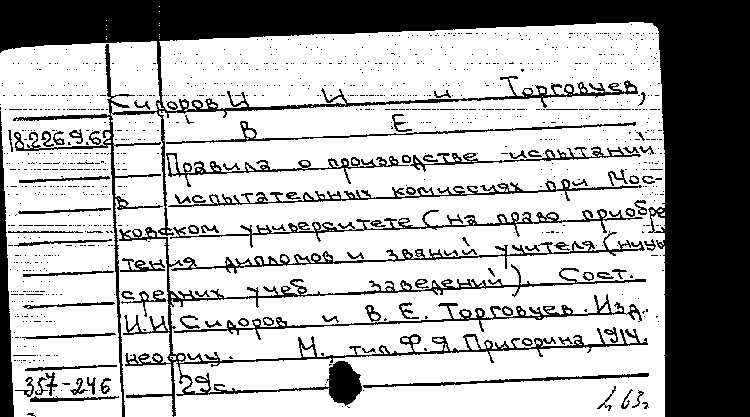 Сидоров, И И и Торговцев,
18.226.9.62 В Е
Правила о производстве испытаний
в испытательных комиссиях при Мос-
ковском университете (на право приобре
тения дипломов и званий учителя (
средних учеб. заведений). Сост.
И.И. Сидоров и В. Е. Торговцев. Изд.
неофиц. М., тип. Ф.Я. Пригорина, 1914.
357-246 29с.
63г